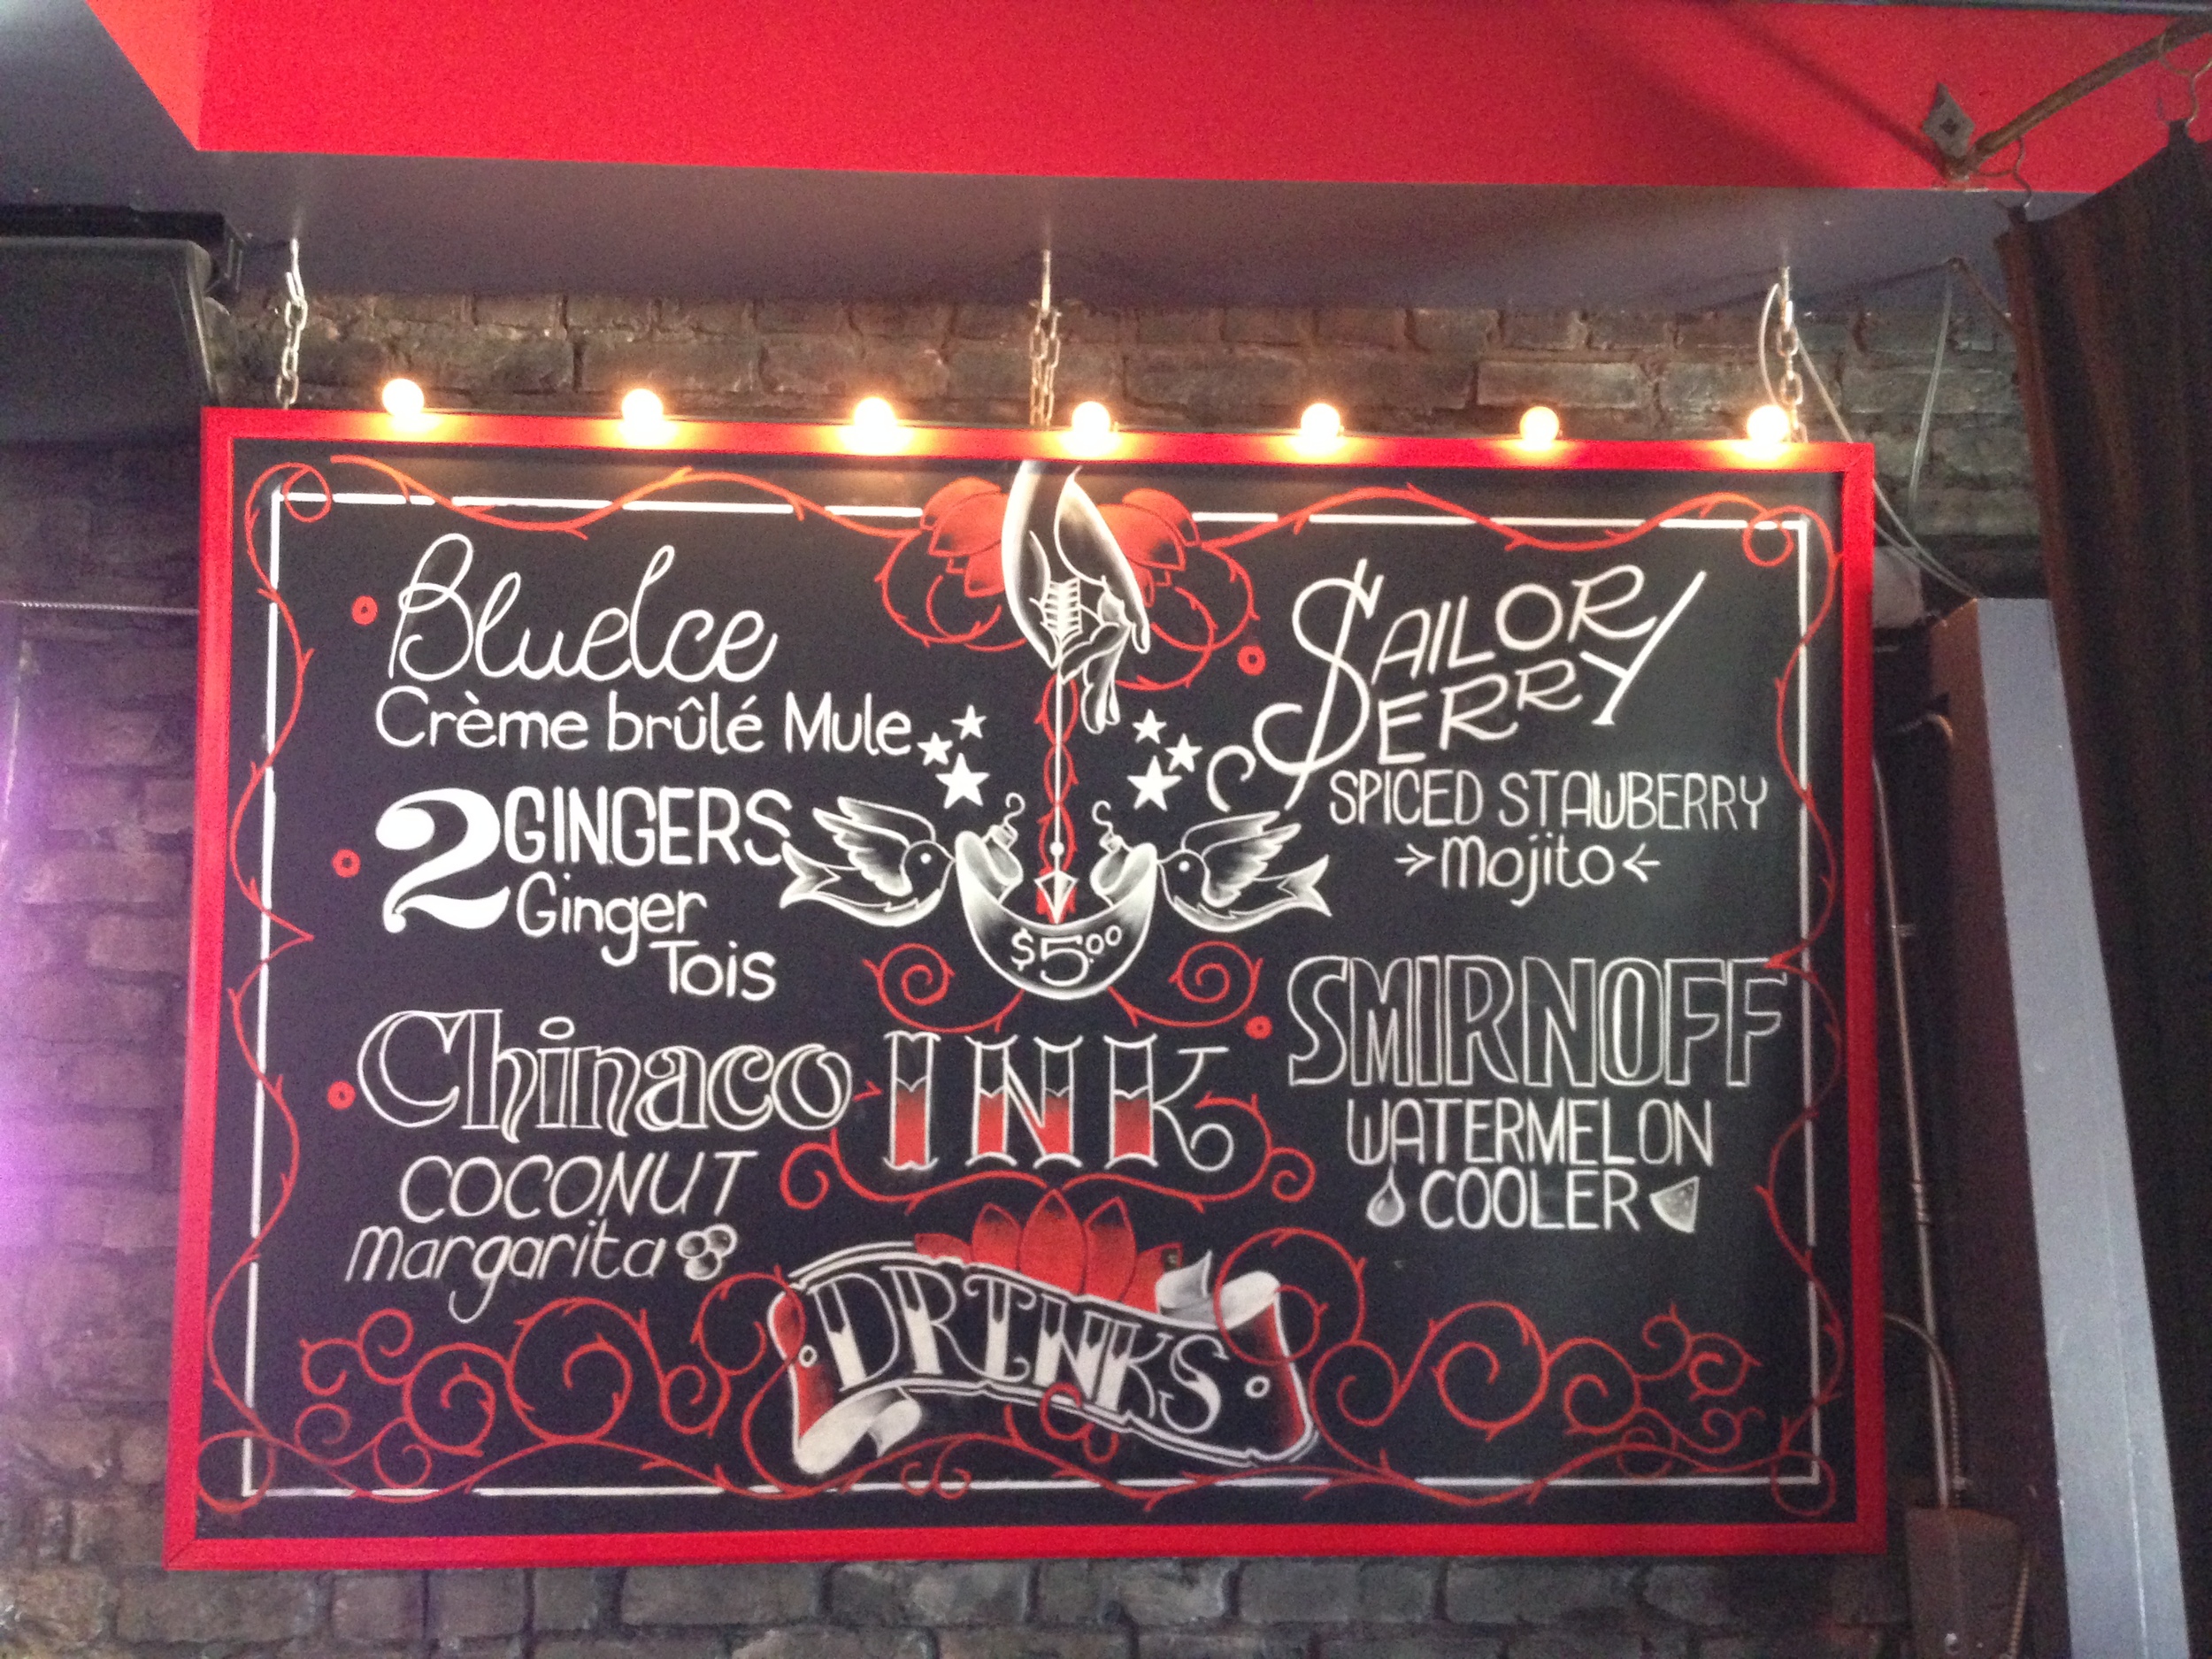 BlueIce
Crème brûlé Mule
2 GINGERS
Ginger
Tois
Chinaco
COCONUT
margarita
$5.00
INK
DRINKS
SAILOR
JERRY
SPICED STAWBERRY
mojito
SMIRNOFF
WATERMELON
COOLER